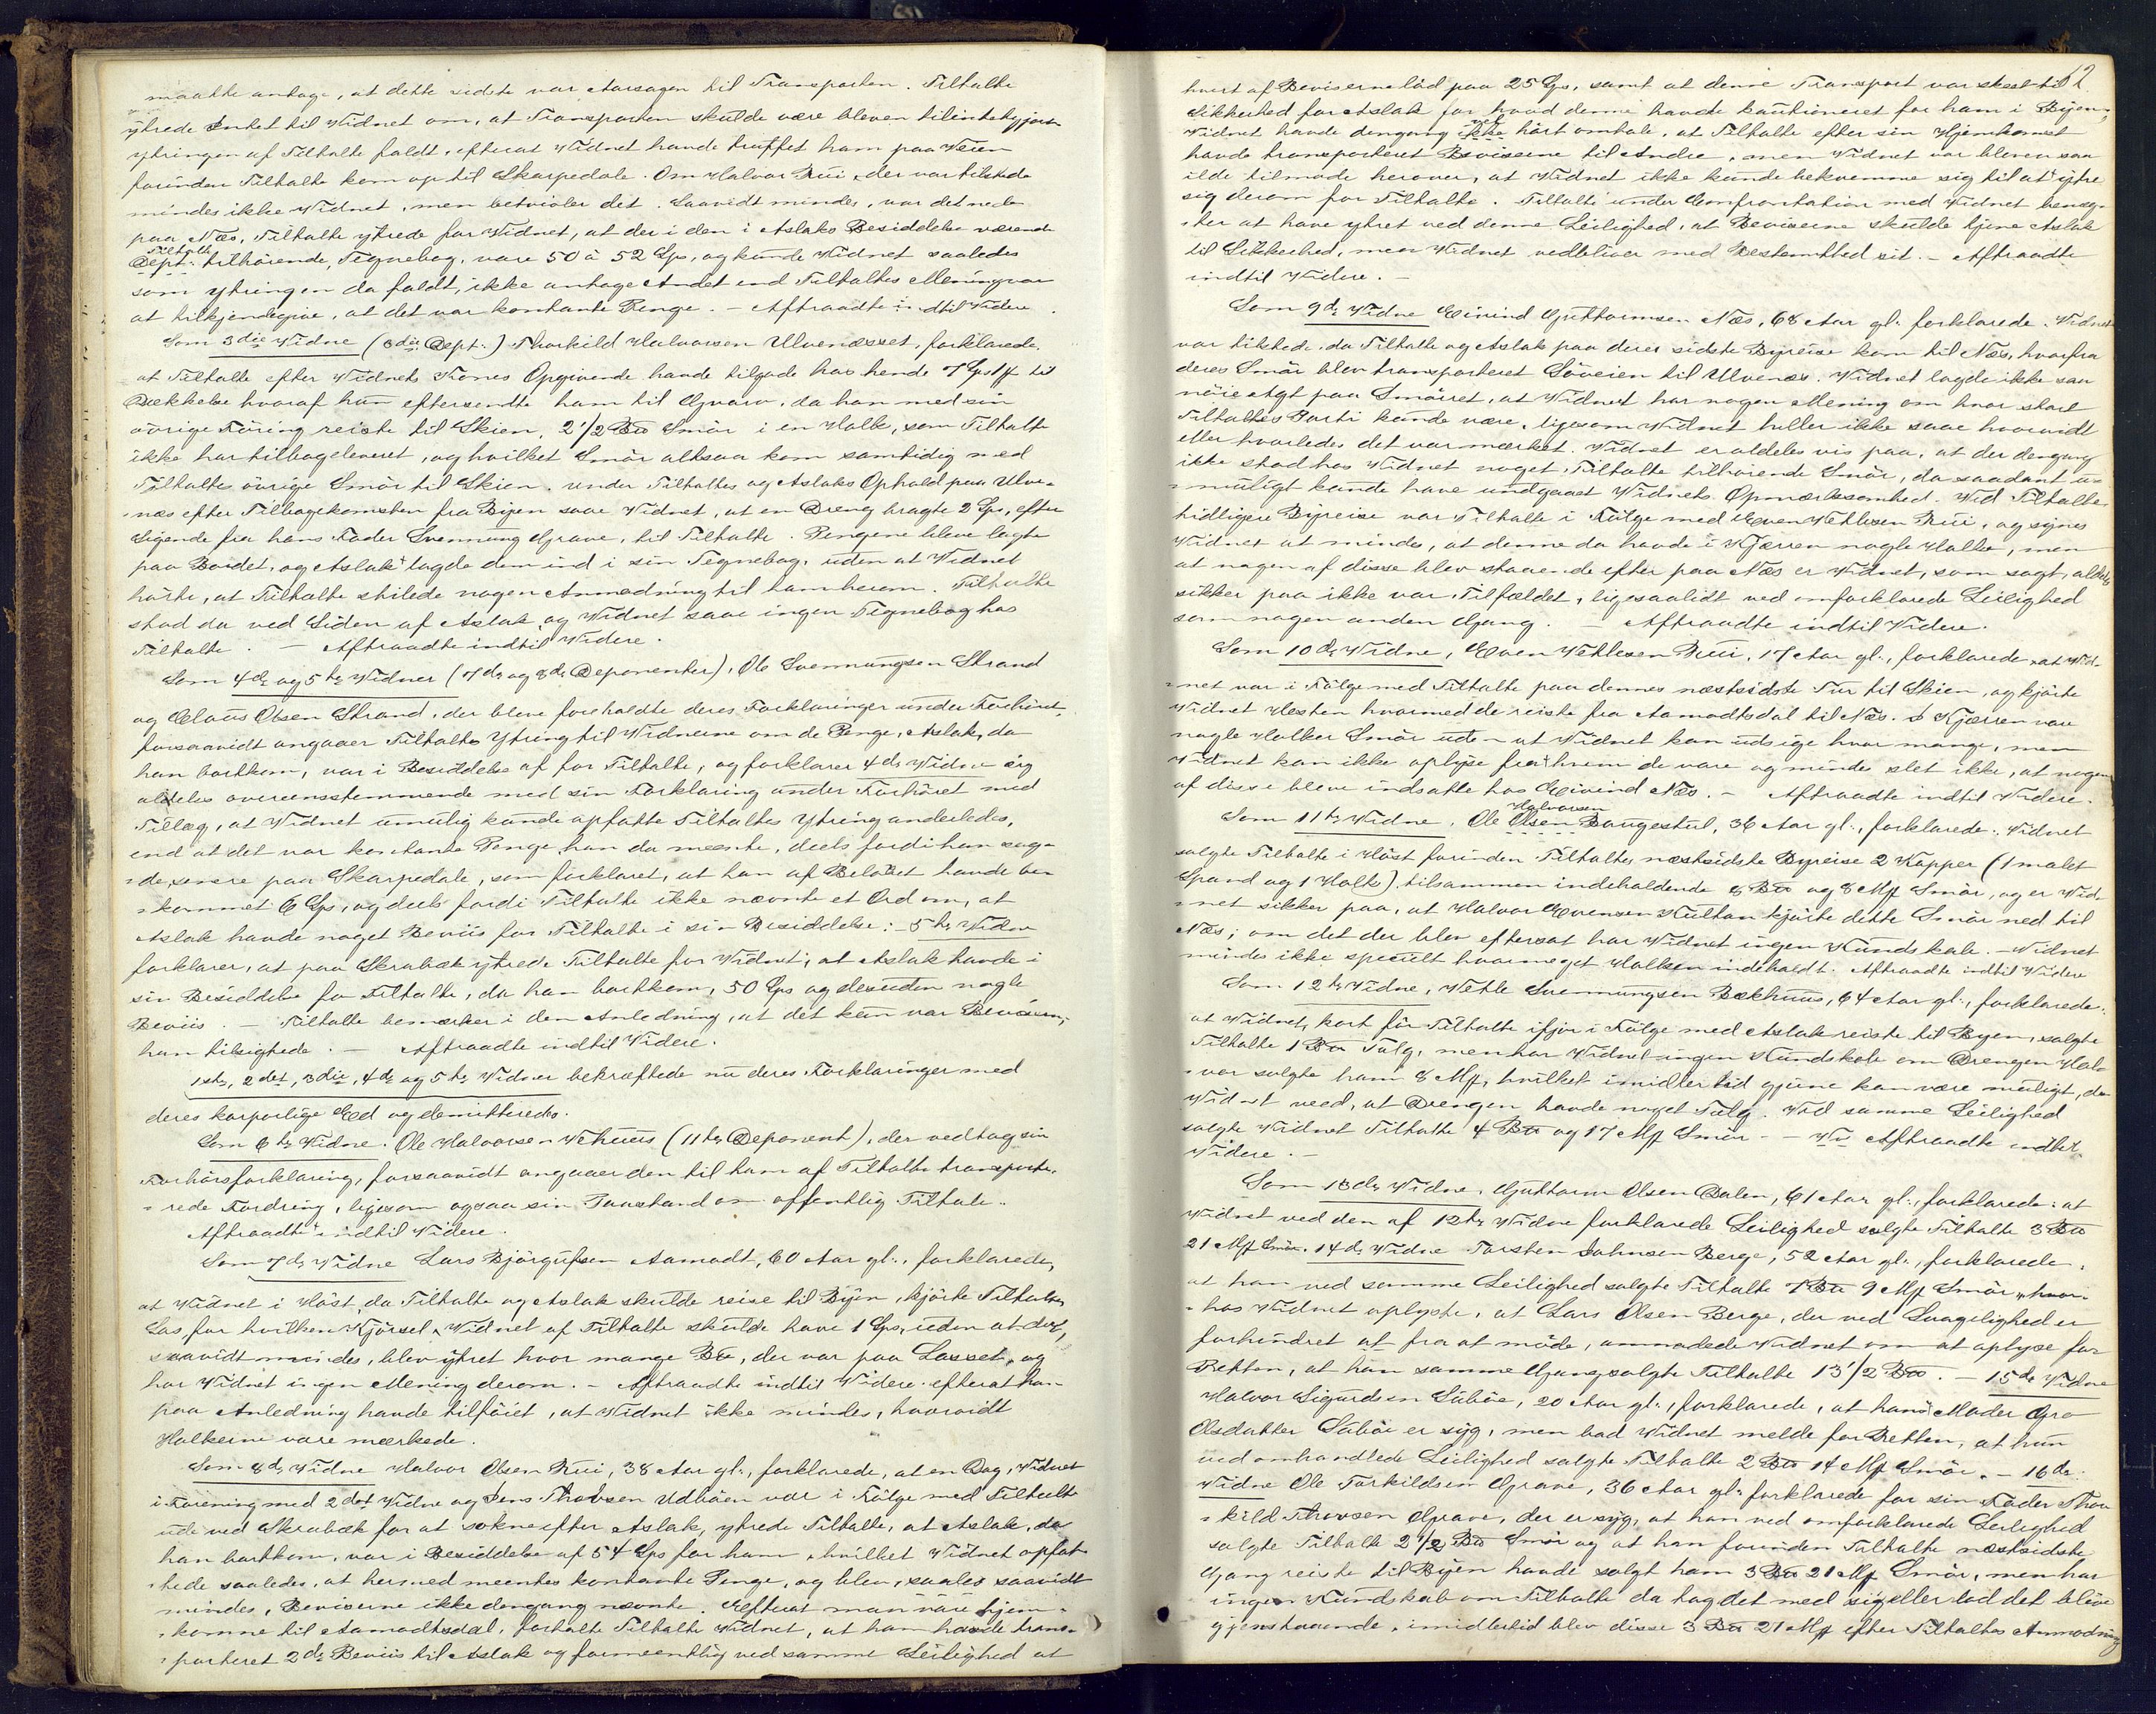 maatte antage, at dette sidste var Aarsagen til Transporten. Tiltalte
yttrede Intet til Vidnet om, at Transporten skulde være bleven tilintetgjort.
Ytringen af Tiltalte faldt, efterat Vidnet havde truffet ham paa Veien
forinden Tiltalte kom op til Skarpedale. Om Halvor Rui, der var tilstede
mindes ikke Vidnet, men betvivler det. Saavidt mindes, var det nede
paa Næs, Tiltalte ytrede for Vidnet, at der i den i Aslaks Besiddelse værende
Tiltalte
Dept. tilhörende, Tegnebog, vare 50 à 52 Sps, og kunde Vidnet saaledes
som ytringen da faldt, ikke antage Andet end Tiltaltes Mening var
at tilkjendegive, at det var kontante Penge. – Aftraadte indtil Videre.
Som 3die Vidne (6die Dept.) Thorkild Halvorsen Ulvenæsset, forklarede,
at Tiltalte efter Vidnets Kones Opgivende havde tilgode hos hende 7 Sp 1 ꝑ til
Dækkelse hvoraf hun eftersendte ham til Gvarv, da han med sin
övrige Föring reiste til Skien, 2 1/2 Bɯ Smör i en Holk, som Tiltalte
ikke har tilbageleveret, og hvilket Smör altsaa kom samtidig med
Tiltaltes övrige Smör til Skien. under Tiltaltes og Aslaks Ophold paa Ulve-
næs efter Tilbagekomsten fra Byen saae Vidnet, at en Dreng bragte 2 Sp, efter
Sigende fra hans Fader Svennung Grave, til Tiltalte. Pengene bleve lagte
paa Bordet, og Aslak tagde dem ind i sin Tegnebog, uden at Vidnet
hörte, at Tiltalte stilede nogen Anmodning til ham herom. Tiltalte
stod da ved Siden af Aslak, og Vidnet saae ingen Tegnebog hos
Tiltalte. – Aftraadte indtil Videre.
Som 4de og 5te Vidner (7de og 8de Deponenter), Ole Svennungsen Strand
og Claus Olsen Strand, der bleve foreholdte deres Forklaringer under Forhöret,
forsaavidt angaaer Tiltaltes Ytring til Vidnerne om de Penge, Aslak, da
han bortkom, var i Besiddelse af for Tiltalte, og forklarer 4de Vidne sig
aldeles overeensstemmende med sin Forklaring under Forhöret med
Tillæg, at Vidnet umulig kunde opfatte Tiltaltes Ytring anderledes,
end at det var kontante Penge han da meente, deels fordi han sag-
de senere paa Skarpedale, som forklaret, at han af Belöbet havde be-
kommet 6 Sps, og deels fordi Tiltalte ikke nævnte et Ord om, at
Aslak havde noget Beviis for Tiltalte i sin Besiddelse: – 5te Vidne
forklarer, at paa Skrabæk ytrede Tiltalte for Vidnet, at Aslak havde i
sin Besiddelse for Tiltalte, da han bortkom, 50 Sps og desuden nogle
Beviis. – Tiltalte bemærker i den Anledning, at det kun var Beviserne,
han tilsigtede. – Aftraadte indtil Videre.
1ste, 2det, 3die, 4de og 5te Vidner bekræftede nu deres Forklaringer med
deres korporlige Eed og demitteredes.
Som 6te Vidne. Ole Halvorsen Vehuus (11te Deponent), der vedtog sin
Forhörsforklaring, forsaavidt angaaer den til ham af Tiltalte transporte-
rede Fordring, ligesom ogsaa sin Paastand om offentlig Tiltale.
Aftraadte indtil Videre.
Som 7de Vidne Lars Björgufsen Aamodt, 60 Aar gl., forklarede,
at Vidnet i Höst, da Tiltalte og Aslak skulde reise til Byen, kjörte Tiltaltes
Læs, for hvilken Kjörsel, Vidnet af Tiltalte skulde have 1 Sps, uden at det,
saavidt mindes, blev ytret hvor mange Bɯ, der var paa Læsset, og
har Vidnet ingen Mening derom. – Aftraadte indtil Videre efterat han
paa Anledning havde tilföiet, at Vidnet ikke mindes, hvorvidt
Holkerne vare mærkede.
Som 8de Vidne Halvor Olsen Rui, 38 Aar gl., forklarede, at en Dag, Vidnet
i Forening med 2det Vidne og Jens Thovsen Udböen var i Fölge med Tiltalte
ude ved Skrabæk for at sokne efter Aslak, ytrede Tiltalte, at Aslak, da
han bortkom, var i Besiddelse af 54 Sps for ham, hvilket Vidnet opfat-
tede saaledes, at hermed meentes kontante Penge, og blev, saavidt
mindes, Beviserne ikke dengang nævnte. Efterat man vare hjem-
komne til Aamodtsdal, fortalte Tiltalte Vidnet, at han havde trans-
porteret 2de Beviis til Aslak og formeentlig ved samme Leilighed at
12
hvert af Beviserne löd paa 25 Sps, samt at denne Transport var skeet til
Sikkerhed for Aslak for hvad denne havde kautioneret for ham i Byen;
Vidnet havde dengang ikke hört omtale, at Tiltalte efter sin Hjemkomst
havde transporteret Beviserne til Andre, men Vidnet var bleven saa
ilde tilmode herover, at Vidnet ikke kunde bekvemme sig til at ytre
sig derom for Tiltalte. Tiltalte under Confrontation med Vidnet benæg-
ter at have ytret ved denne Leilighed, at Beviserne skulde tjene Aslak
til Sikkerhed, men Vidnet vedbliver med Bestemthed sit. – Aftraadte
indtil Videre. –
Som 9de Vidne Eivind Guttormsen Næs, 68 Aar gl. forklarede. Vidnet
var tilstede, da Tiltalte og Aslak paa deres sidste Byreise kom til Næs, hvorfra
deres Smör blev transporteret Söveien til Ulvenæs. Vidnet lagde ikke saa
nöie Agt paa Smörret, at Vidnet har nogen Mening om hvor stort
Tiltaltes Parti kunde være, ligesom Vidnet heller ikke saae hvorvidt
eller hvorledes det var mærket. Vidnet er aldeles vis paa, at der dengang
ikke stod hos Vidnet noget, Tiltalte tilhörende Smör, da saadant u-
muligt kunde have undgaaet Vidnets Opmærksomhed. Ved Tiltaltes
tidligere Byreise var Tiltalte i Fölge med Even Vetlesen Rui, og synes
Vidnet at mindes, at denne da havde i Kjærren nogle Holker, men
at nogen af disse blev staaende efter paa Næs er Vidnet, som sagt, aldeles
sikker paa ikke var Tilfældet, ligesaalidt ved omforklarede Leilighed
som nogen anden Gang. – Aftraadte indtil Videre.
Som 10de Vidne, Even Vetlesen Rui, 17 Aar gl., forklarede, at Vid-
net var i Fölge med Tiltalte paa dennes næstsidste Tur til Skien, og kjörte
Vidnet Hesten hvormed de reiste fra Aamodtsdal til Næs. I Kjærren vare
nogle Holker Smör uden at Vidnet kan udsige hvor mange, men
Vidnet kan ikke oplyse fra hvem de vare og mindes slet ikke, at nogen
af disse bleve indsatte hos Eivind Næs. – Aftraadte indtil Videre.
Halvorsen
Som 11te Vidne. Ole Olsen Baugestul, 36 Aar gl., forklarede: Vidnet
solgte Tiltalte i Höst forinden Tiltaltes næstsidste Byreise 2 Kopper (1 malet
Spand og 1 Holk) tilsammen indeholdende 8 Bɯ og 8 Mꝑ Smör, og er Vid-
net sikker paa, at Halvor Evensen Hultan kjörte dette Smör ned til
Næs; om det der blev eftersat har Vidnet ingen Kundskab. – Vidnet
mindes ikke specielt hvormeget Holken indeholdt. Aftraadte indtil Videre
Som 12te Vidne, Vetle Svennungsen Bækhuus, 64 Aar gl., forklarede:
at Vidnet, kort för Tiltalte ifjor i Fölge med Aslak reiste til Byen, solgte
Tiltalte 1 Bɯ Talg, men har Vidnet ingen Kundskab om Drengen Hal-
vor solgte ham 8 Mꝑ, hvilket imidlertid gjerne kan være muligt, da
Vidnet veed, at Drengen havde noget Talg. Ved samme Leilighed
solgte Vidnet Tiltalte 4 Bɯ og 17 Mꝑ Smör. – Aftraadte indtil
Videre. –
Som 13de Vidne, Guttorm Olsen Dalen, 61 Aar gl., forklarede: at
Vidnet ved den af 12te Vidne forklarede Leilighed solgte Tiltalte 3 Bɯ
21 Mꝑ Smör. 14de Vidne Torsten Johnsen Berge, 52 Aar gl., forklarede,
at han ved samme Leilighed solgte Tiltalte 7 Bɯ 9 Mꝑ Smör, hvor-
hos Vidnet oplyste, at Lars Olsen Berge, der ved Svagelighed er
forhindret at fra at möde, anmodede Vidnet om at oplyse for
Retten, at han samme Gang solgte Tiltalte 13 1/2 Bɯ. – 15de Vidne
Halvor Sigurdsen Sæböe, 20 Aar gl., forklarede, at hans Moder Gro
Olsdatter Sæböe er syg, men bad Vidnet melde for Retten, at hun
ved omhandlede Leilighed solgte Tiltalte 2 Bɯ 14 Mꝑ Smör. – 16de
Vidne Ole Torkildsen Grave, 36 Aar gl. forklarede for sin Fader Thor-
kild Thovsen Grave, der er syg, at han ved omforklarede Leilighed
solgte Tiltalte 2 1/2 Bɯ Smör og at han forinden Tiltalte næstsidste
Gang reiste til Byen havde solgt ham 3 Bɯ 21 Mꝑ Smör, men har
ingen Kundskab om Tiltalte da tog det med sig eller lod det blive
gjenstaaende, imidlertid blev disse 3 Bɯ 21 Mꝑ efter Tiltaltes Anmodning